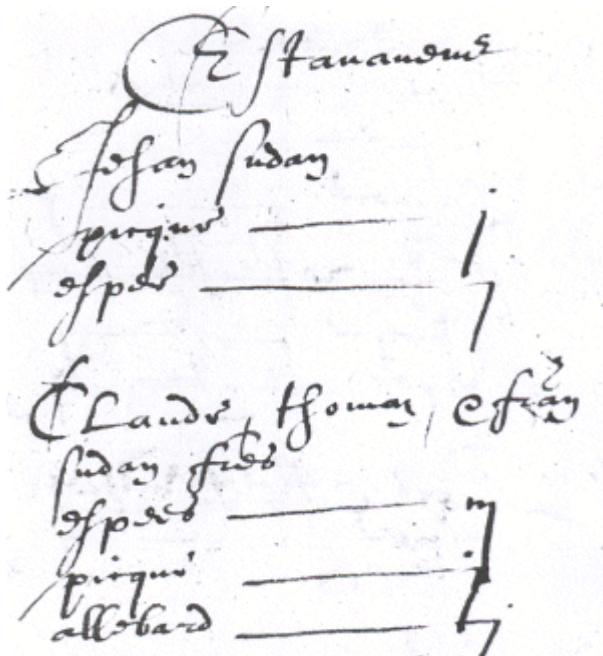 Estavanens
Jehan Sudan
picque j
espee j
Claude, thomaz, e fran
sudan fres
espees iij
picque j
allebard j